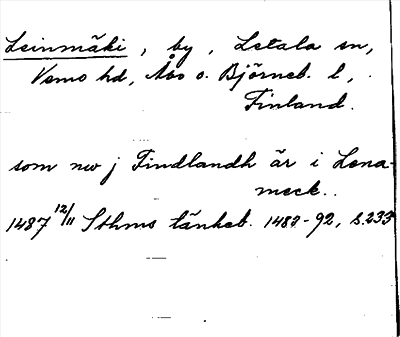 Leinmäki, by, Letala sn,
Vemo hd, Åbo o. Björneb. l,
Finland.
som nw j Findlandh är i Lena-
meck..
1487 12/11 Sthms tänkeb. 1483-92, s.233